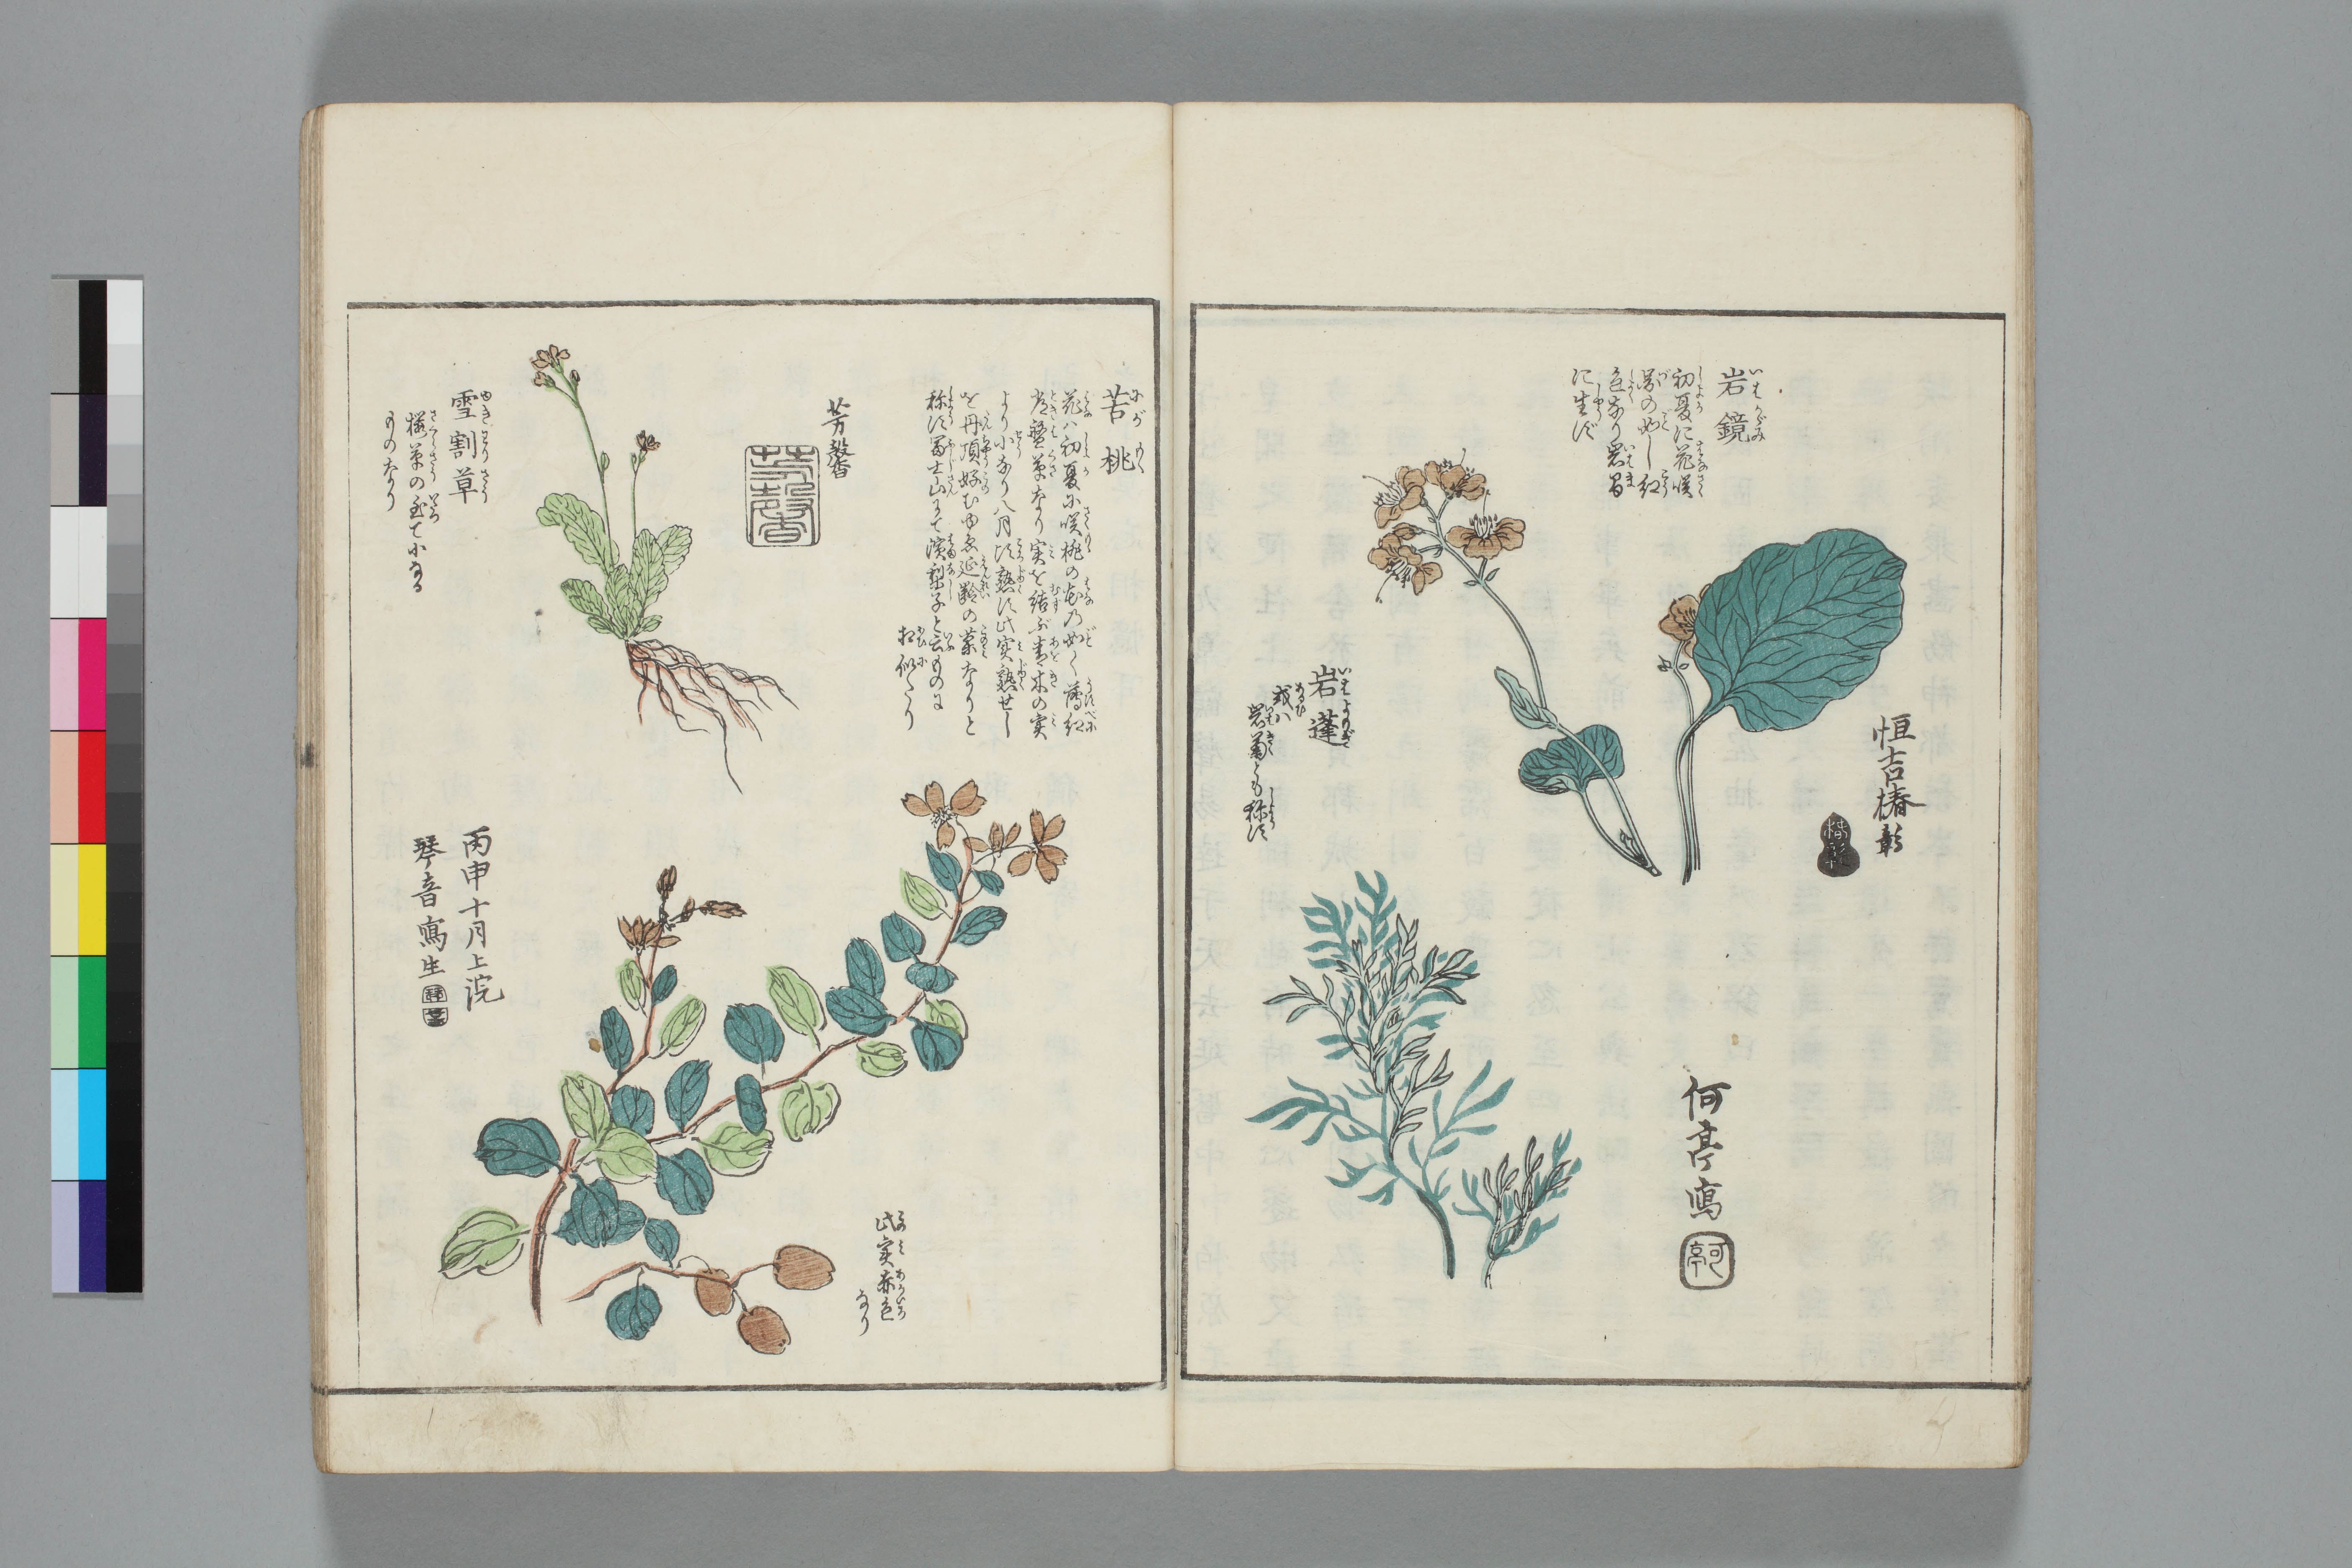 岩鏡
初夏に花咲
図の如し紅
色あり岩間
に生ず
恒吉椿彰
岩蓬
或ハ
岩菊とも称す
何亭寫
苦桃
花ハ初夏に咲桃の花の如く薄紅
常盤草なり実を結ぶ青木の実
より小なり八月頃熟す此実熟せし
を丹頂好むゆゑ延齢の菓なりと
称す冨士山にて濱梨子と云ものに
相似たり
芳馨
芳馨
雪割草
桜草の至て小なる
ものなり
丙申十月上浣
琴音寫生
此実赤色
なり